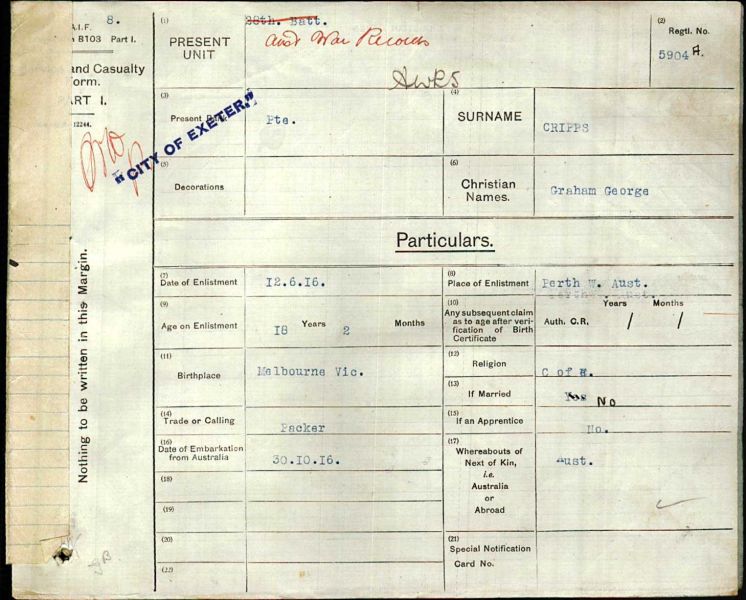 8.
A.I.F.
B103 Part I.
and Casualty
Form.
PART I.
12244.
Nothing to be written in this Margin.
"CITY OF EXETER."
(1)
PRESENT UNIT
28th. Batt.
Aust War Records
AWRS
(2)
Regtl. No.
5904 A.
(3)
Present Rank
Pte.
(4)
SURNAME
CRIPPS
(5)
Decorations
(6)
Christian Names.
Graham George
Particulars.
(7)
Date of Enlistment
12.6.16.
(8)
Place of Enlistment
Perth W. Aust.
(9)
Age on Enlistment
18 Years 2 Months
(10)
Any subsequent claim
as to age after veri-
fication of Birth
Certificate
Years Months
Auth. C.R, / /
(11)
Birthplace
Melbourne Vic.
(12)
Religion
C of E.
(13)
If Married
Yes No
(14)
Trade or Calling
Packer
(15)
If an Apprentice
No.
(16)
Date of Embarkation
from Australia
30.10.16.
(17)
Whereabouts of
Next of Kin,
i.e.
Australia
or
Abroad
Aust.
(18)
(19)
(20)
(21)
Special Notification
Card No.
(22)